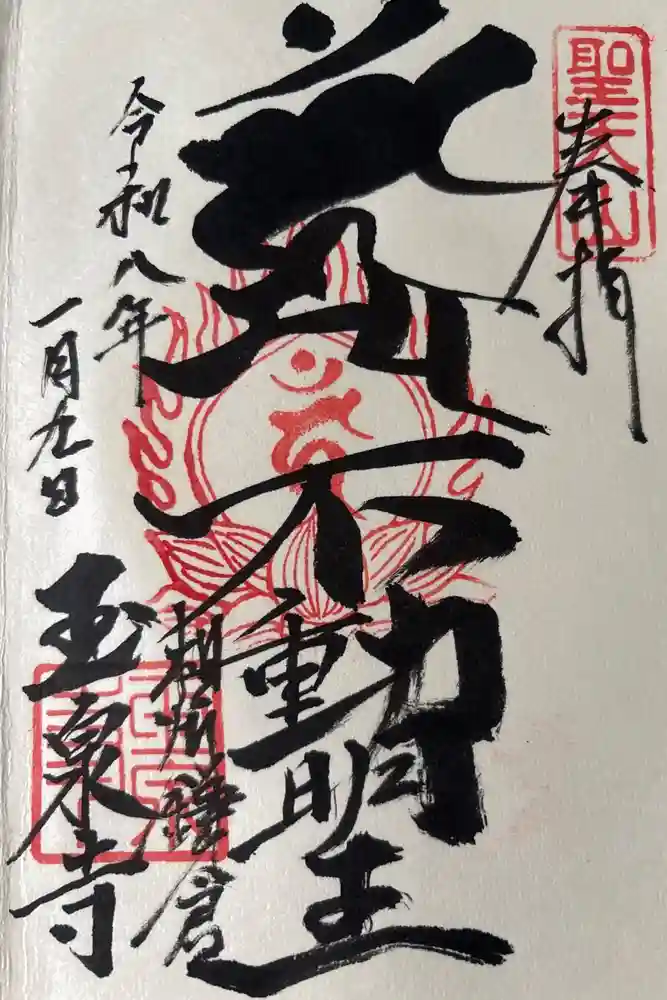 聖天山
奉拝
不動明王
令和八年
一月九日
相州鎌倉
玉泉寺